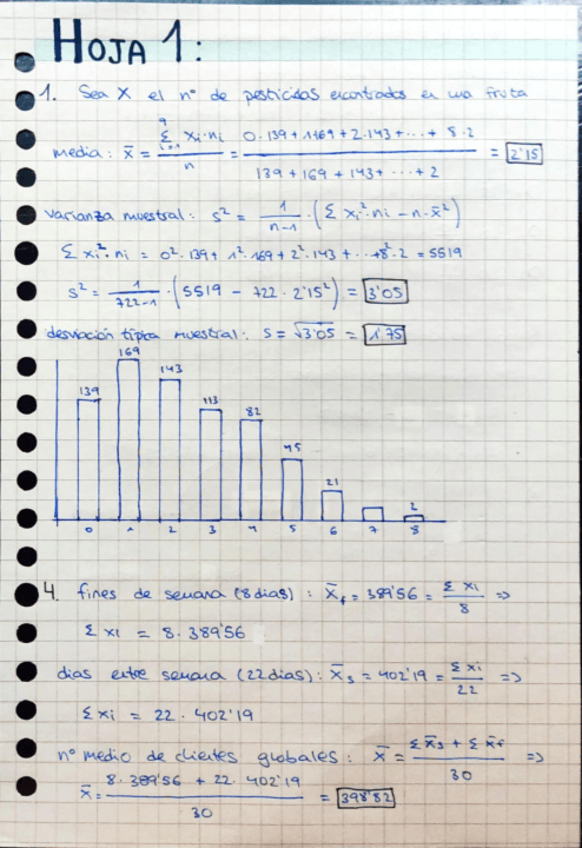 HOJA 1:
1. Sea X el nº de pesticidas encontrados en una fruta
media: x̄ = (9 Σ i=1 xi·ni)/n = (0·139 + 1·169 + 2·143 + ... + 8·2)/(139 + 169 + 143 + ... + 2) = 2'15
varianza muestral: s² = 1/(n-1) · (Σ xi²·ni - n·x̄²)
Σ xi²·ni = 0²·139 + 1²·169 + 2²·143 + ... + 8²·2 = 5519
s² = 1/(722-1) · (5519 - 722·2'15²) = 3'05
desviación típica muestral: s = √3'05 = 1'75
139 169 143 113 82 45 21 2
0 1 2 3 4 5 6 7 8
4. fines de semana (8 dias): x̄f = 389'56 = Σ xi/8 =>
Σ xi = 8·389'56
dias entre semana (22 dias): x̄s = 402'19 = Σ xi/22 =>
Σ xi = 22·402'19
nº medio de clientes globales: x̄ = (Σ x̄s + Σ x̄f)/30 =>
x̄ = (8·389'56 + 22·402'19)/30 = 398'82